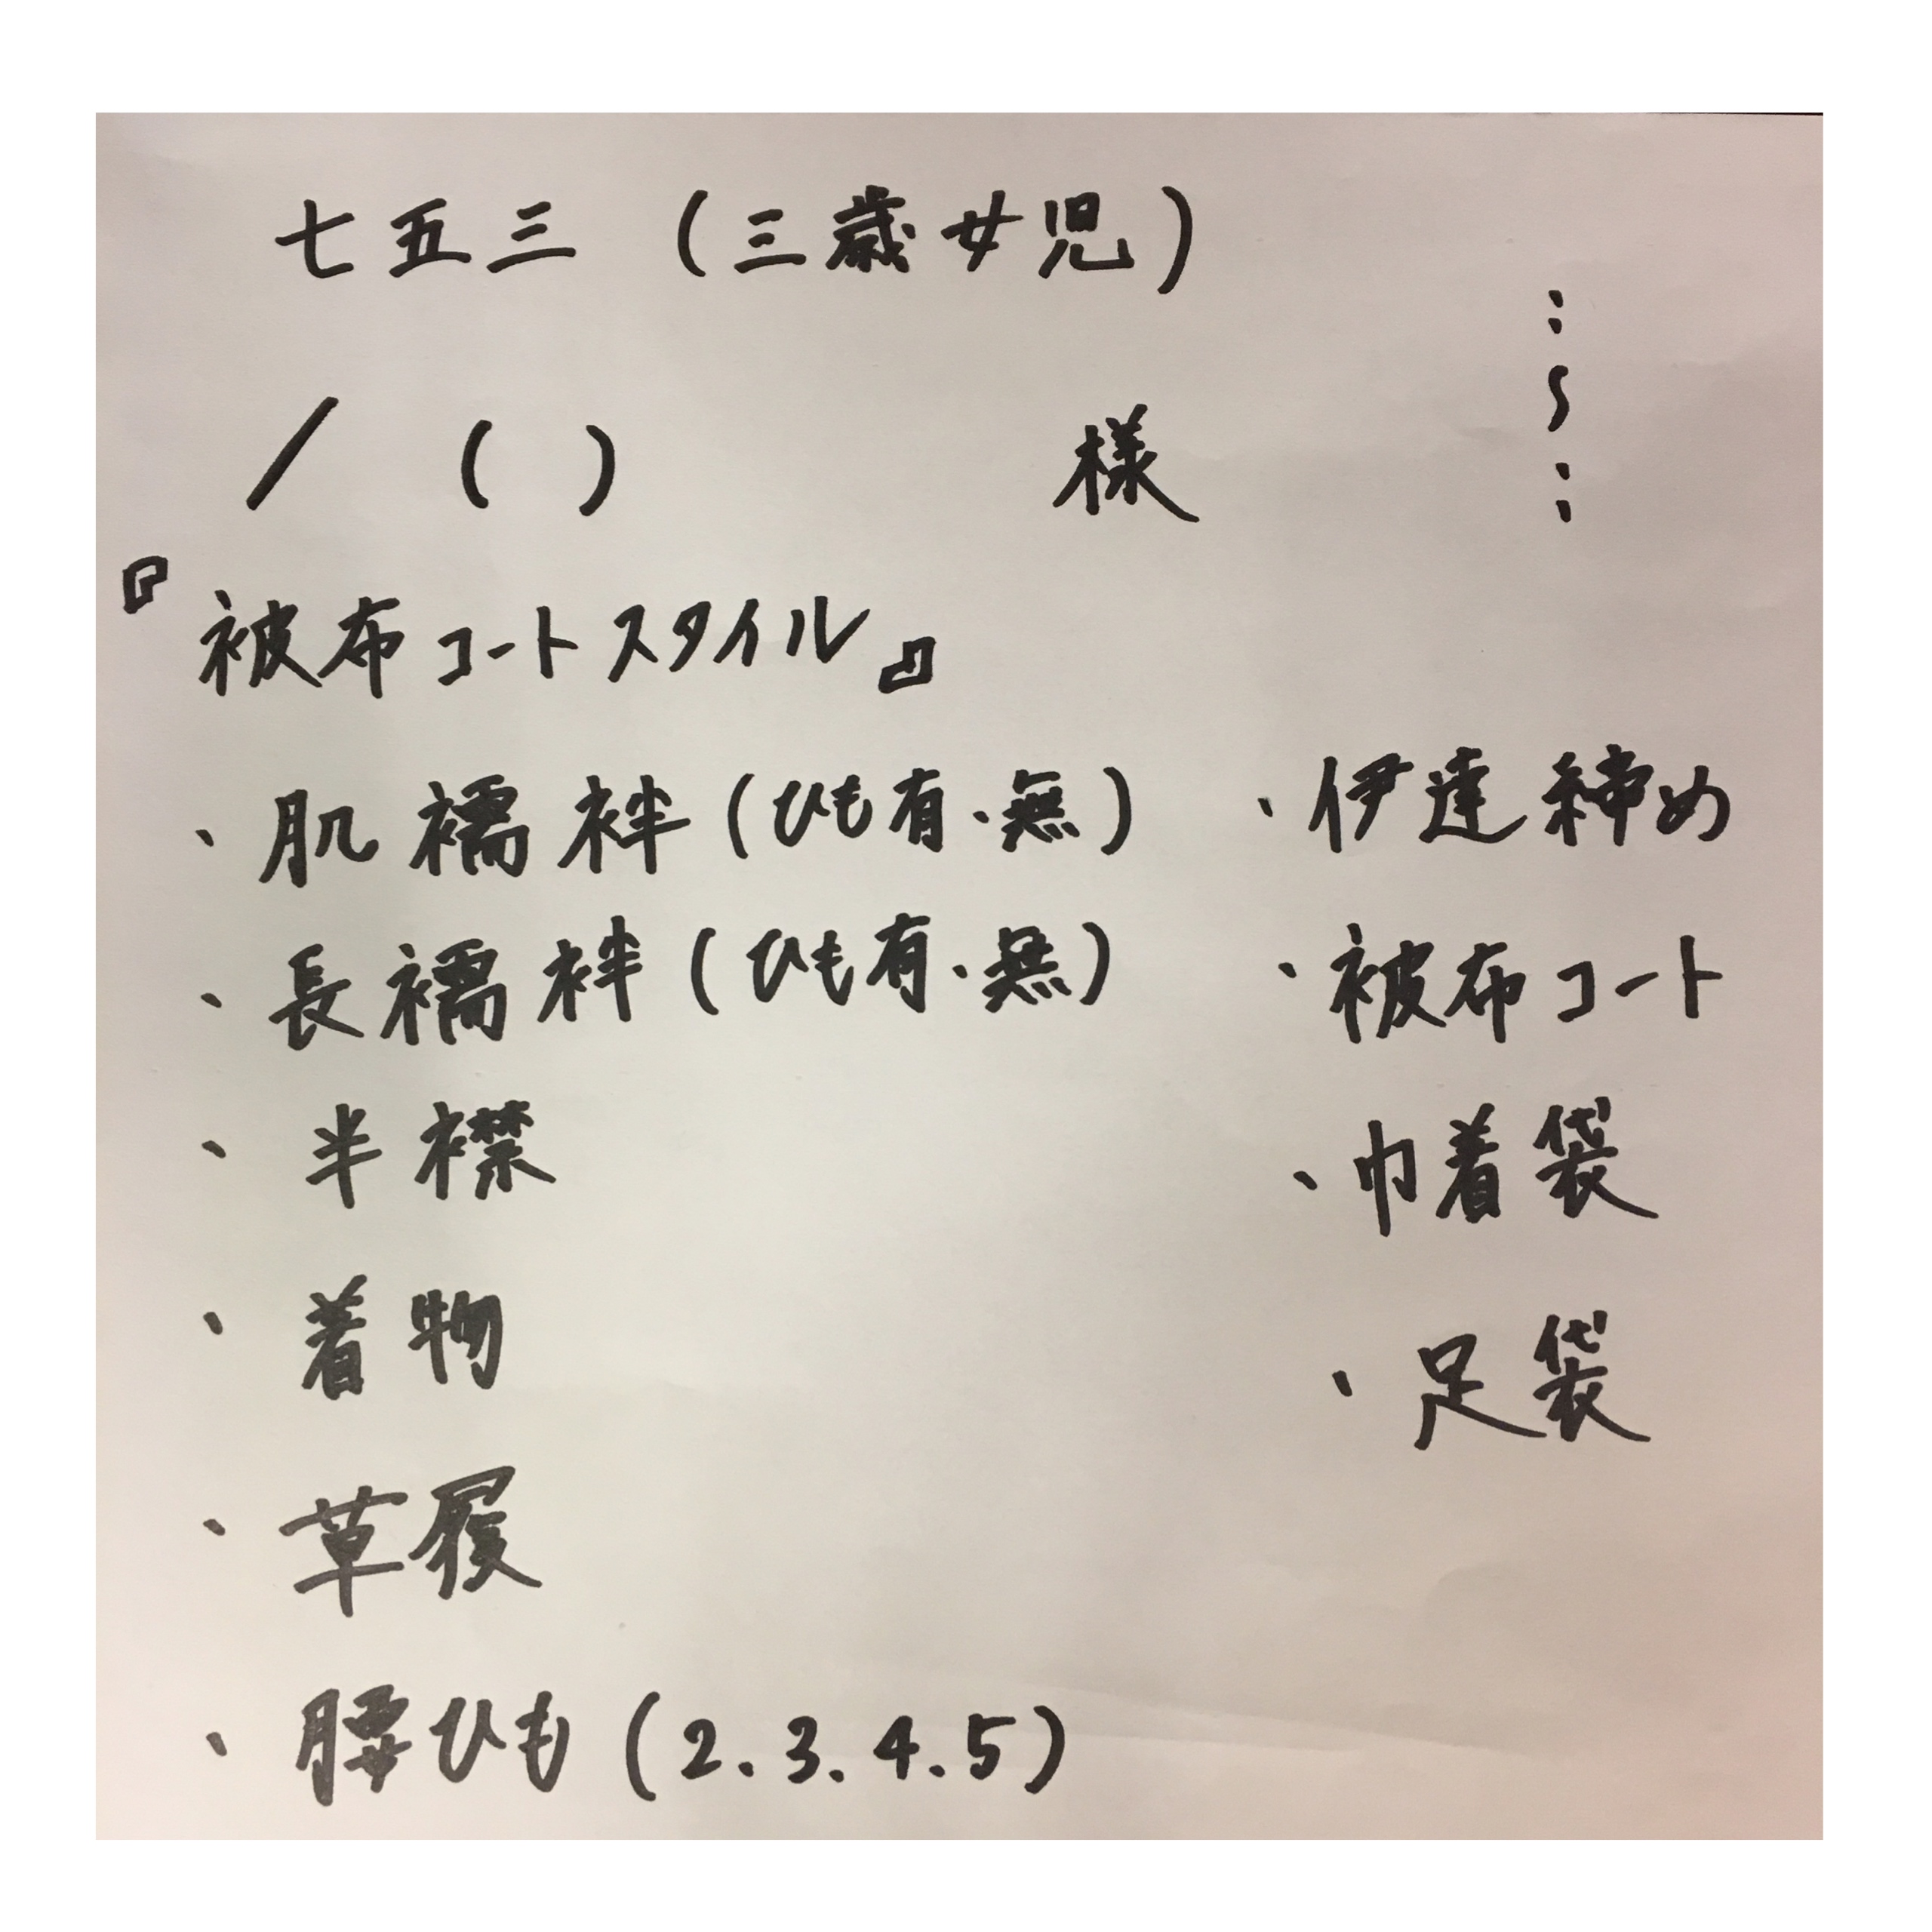 七五三 (三歳女児)
/ ( ) 様
: 〜 :
『被布コートスタイル』
・肌襦袢 (ひも有・無)
・長襦袢 (ひも有・無)
・半襟
・着物
・草履
・腰ひも (2.3.4.5)
・伊達締め
・被布コート
・巾着袋
・足袋